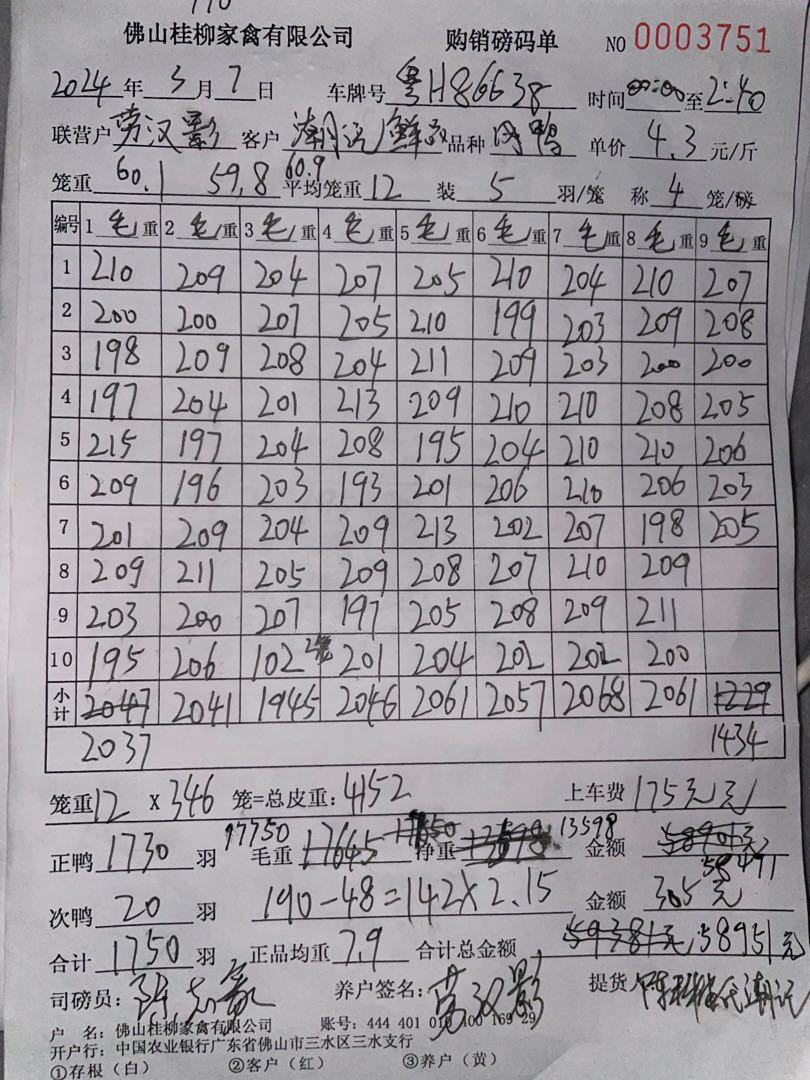 佛山桂柳家禽有限公司 购销磅码单 NO 0003751
2024 年 3 月 7 日 车牌号 粤H86638 时间 00:00 至 2:40
联营户 劳汉影 客户 潮记鲜 品种 肉鸭 单价 4.3 元/斤
笼重 60.1 59.8 60.9 平均笼重 12 装 5 羽/笼 称 4 笼/磅
编号 1 毛 重 2 毛 重 3 毛 重 4 毛 重 5 毛 重 6 毛 重 7 毛 重 8 毛 重 9 毛 重
1 210 209 204 207 205 210 204 210 207
2 200 200 207 205 210 199 203 209 208
3 198 209 208 204 211 209 203 200 200
4 197 204 201 213 209 210 210 208 205
5 215 197 204 208 195 204 210 210 206
6 209 196 203 193 201 206 210 206 203
7 201 209 204 209 213 202 207 198 205
8 209 211 205 209 208 207 210 209
9 203 200 207 197 205 208 209 211
10 195 206 102 2笼 201 204 202 202 200
小计 2047 2041 1945 2046 2061 2057 2068 2061 1229
2037 1434
笼重 12 X 346 笼=总皮重: 4152 上车费 175元 元
正鸭 1730 羽 17750 毛重 17645 净重 13598 金额 58471
次鸭 20 羽 190-48=142X2.15 金额 305元
合计 1750 羽 正品均重 7.9 合计总金额 59381元 58951元
司磅员: 养户签名: 劳汉影 提货
户 名: 佛山桂柳家禽有限公司 账号: 444 401 010 400 169 29
开户行: 中国农业银行广东省佛山市三水区三水支行
①存根（白） ②客户（红） ③养户（黄）